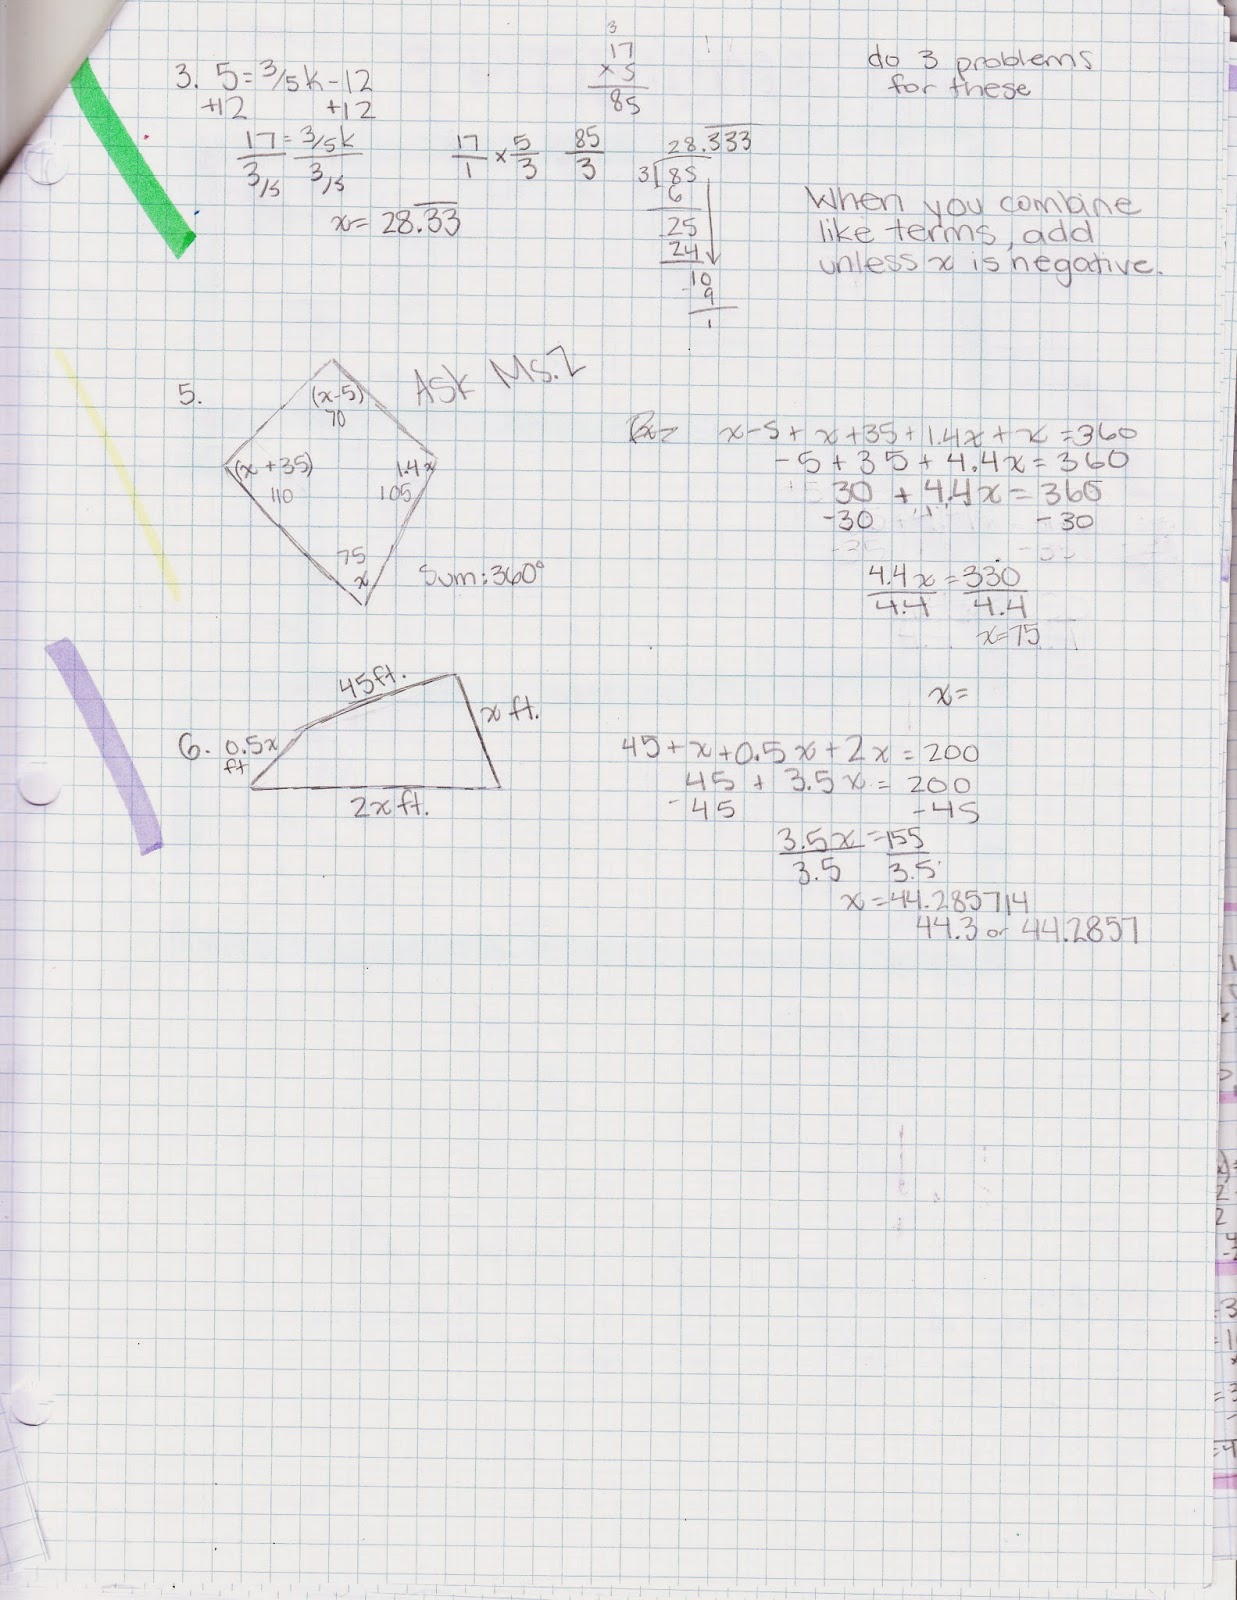 3. 5=3/5k-12
+12 +12
17 = 3/5k
3/5 3/5
x= 28.33
17/1 × 5/3 85/3
3
17
×5
85
28.333
3 85
6
25
24
10
9
1
do 3 problems
for these
When you combine
like terms, add
unless x is negative.
5.
(x-5)
70
(x+35)
110
1.4x
105
75
x
Ask Ms. Z
Sum: 360°
x-5+x+35+1.4x+x=360
-5+35+4.4x=360
30 + 4.4x=360
-30 -30
4.4x = 330
4.4 4.4
x=75
x=
6. 0.5x
ft
45ft.
x ft.
2x ft.
45+x+0.5x+2x=200
45 + 3.5x = 200
-45 -45
3.5x = 155
3.5 3.5
x=44.285714
44.3 or 44.2857